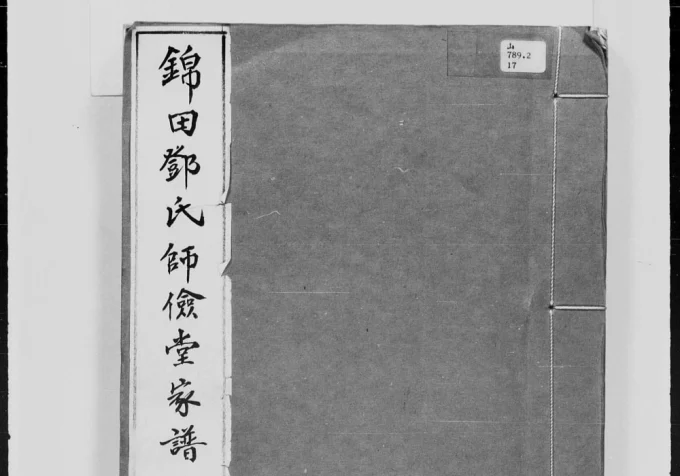 錦田鄧氏師儉堂家譜
山
789.2
17